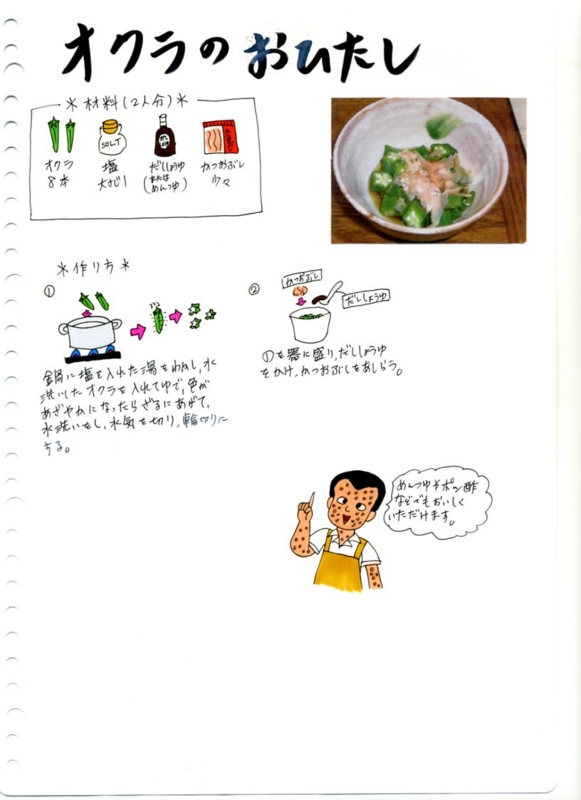 オクラのおひたし
＊材料(2人分)＊
SOLT
オクラ
8本
塩
大さじ1
だししょうゆ
(またはめんつゆ)
かつおぶし
少々
＊作り方＊
①
鍋に塩を入れた湯をわかし,水
洗いしたオクラを入れてゆで,色が
あざやかになったらざるにあげて,
水洗いをし,水気を切り,輪切りに
する。
②
かつおぶし
だししょうゆ
①を器に盛り,だししょうゆ
をかけ,かつおぶしをあしらう。
めんつゆやポン酢
などでもおいしく
いただけます。